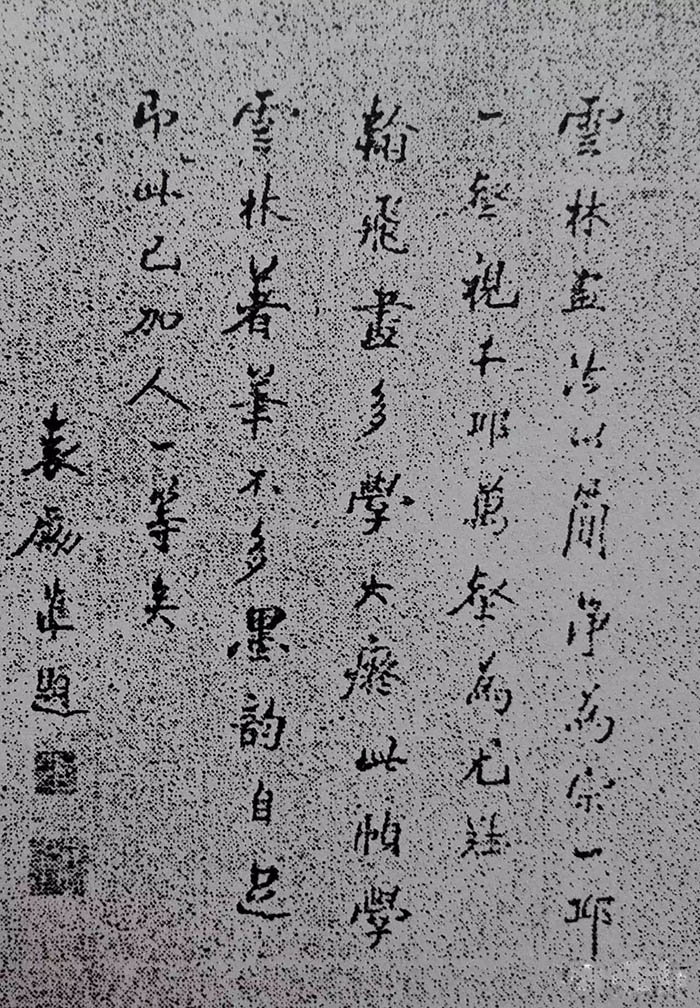 雲林畫法以簡淨為宗一邱
一壑視千邱萬壑為尤難
翰飛畫多學大癡此幀學
雲林著筆不多墨韵自足
即此已加人一等矣
袁勵準題